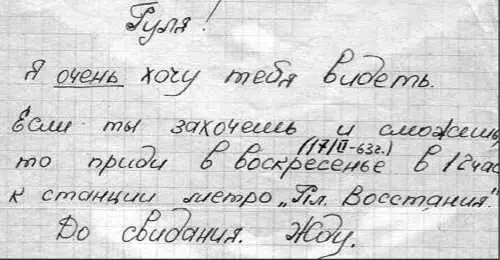 Гуля!
Я очень хочу тебя видеть.
Если ты захочешь и сможешь,
(17/II-63г.)
то приди в воскресенье в 12 час
к станции метро „Пл. Восстания".
До свидания. Жду.